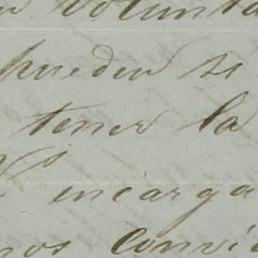 volunta
pueden si
tener la
encarga
nos convi